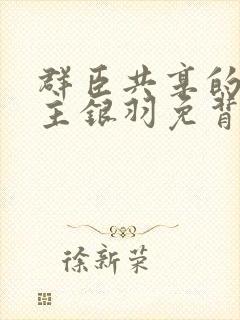 群臣共享的
主银羽免背
徐新荣